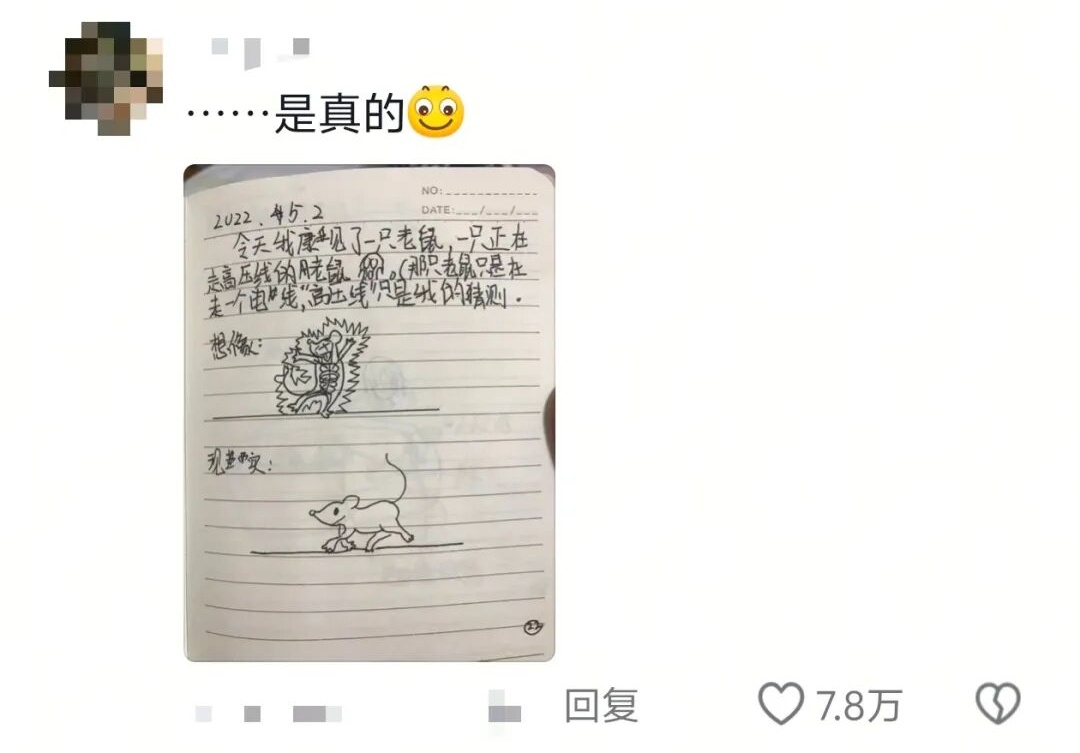 ……是真的
NO:
DATE: / /
2022.5.2
今天我看见了一只老鼠,一只正在
走高压线的老鼠。(那只老鼠只是在
走一个电线,"高压线"只是我的猜测.
想像:
现实:
22
回复
7.8万